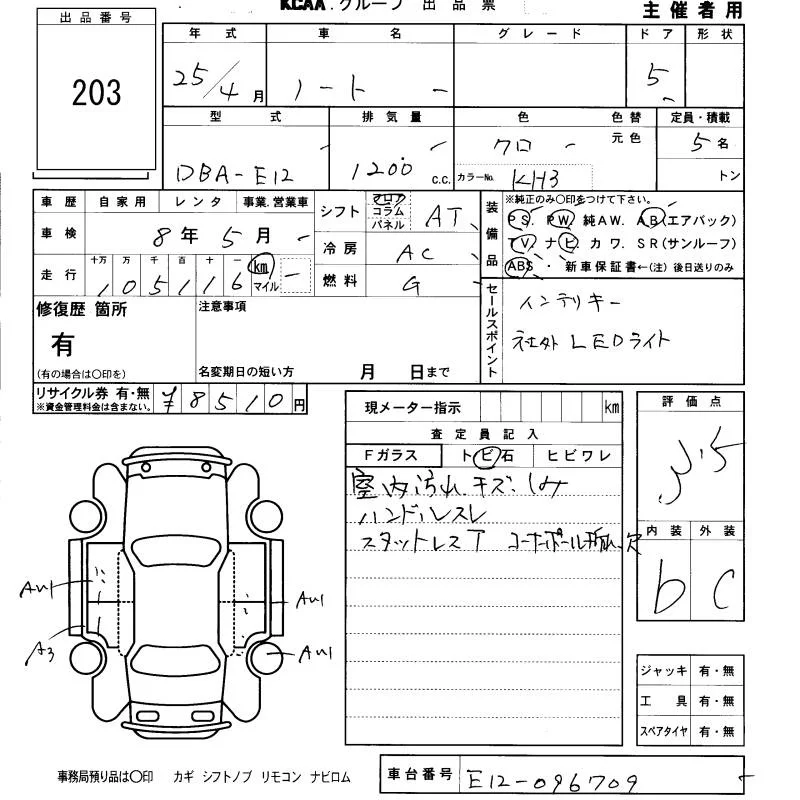 KCAA.グループ 出品票
主催者用
出品番号
203
年式 車名 グレード ドア 形状
25/4月 ノート 5
型式 排気量 色 色替 定員・積載
元色
DBA-E12 1200 c.c. クロ 5名
カラーNo. KH3 トン
車歴 自家用 レンタ 事業.営業車
シフト フロア コラム パネル AT
車検 8年5月
冷房 AC
走行 十万 万 千 百 十 一
105116 km マイル
燃料 G
装備品
※純正のみ〇印をつけて下さい。
PS. PW 純AW. AB(エアバック)
TV ナビ カワ. SR(サンルーフ)
ABS・新車保証書←(注)後日送りのみ
セールスポイント
インテリキー
社外LEDライト
修復歴 箇所
有
(有の場合は〇印を)
注意事項
名変期日の短い方 月 日まで
リサイクル券 有・無
※資金管理料金は含まない。
¥8510円
現メーター指示 km
査定員記入
Fガラス トビ石 ヒビワレ
室内汚れ.キズ.しみ
ハンドルスレ
スタットレスT コーナーポール折れ.欠
評価点
3.5
内装 外装
b C
AU1
A3
AU1
AU1
ジャッキ 有・無
工具 有・無
スペアタイヤ 有・無
事務局預り品は〇印 カギ シフトノブ リモコン ナビロム
車台番号 E12-096709